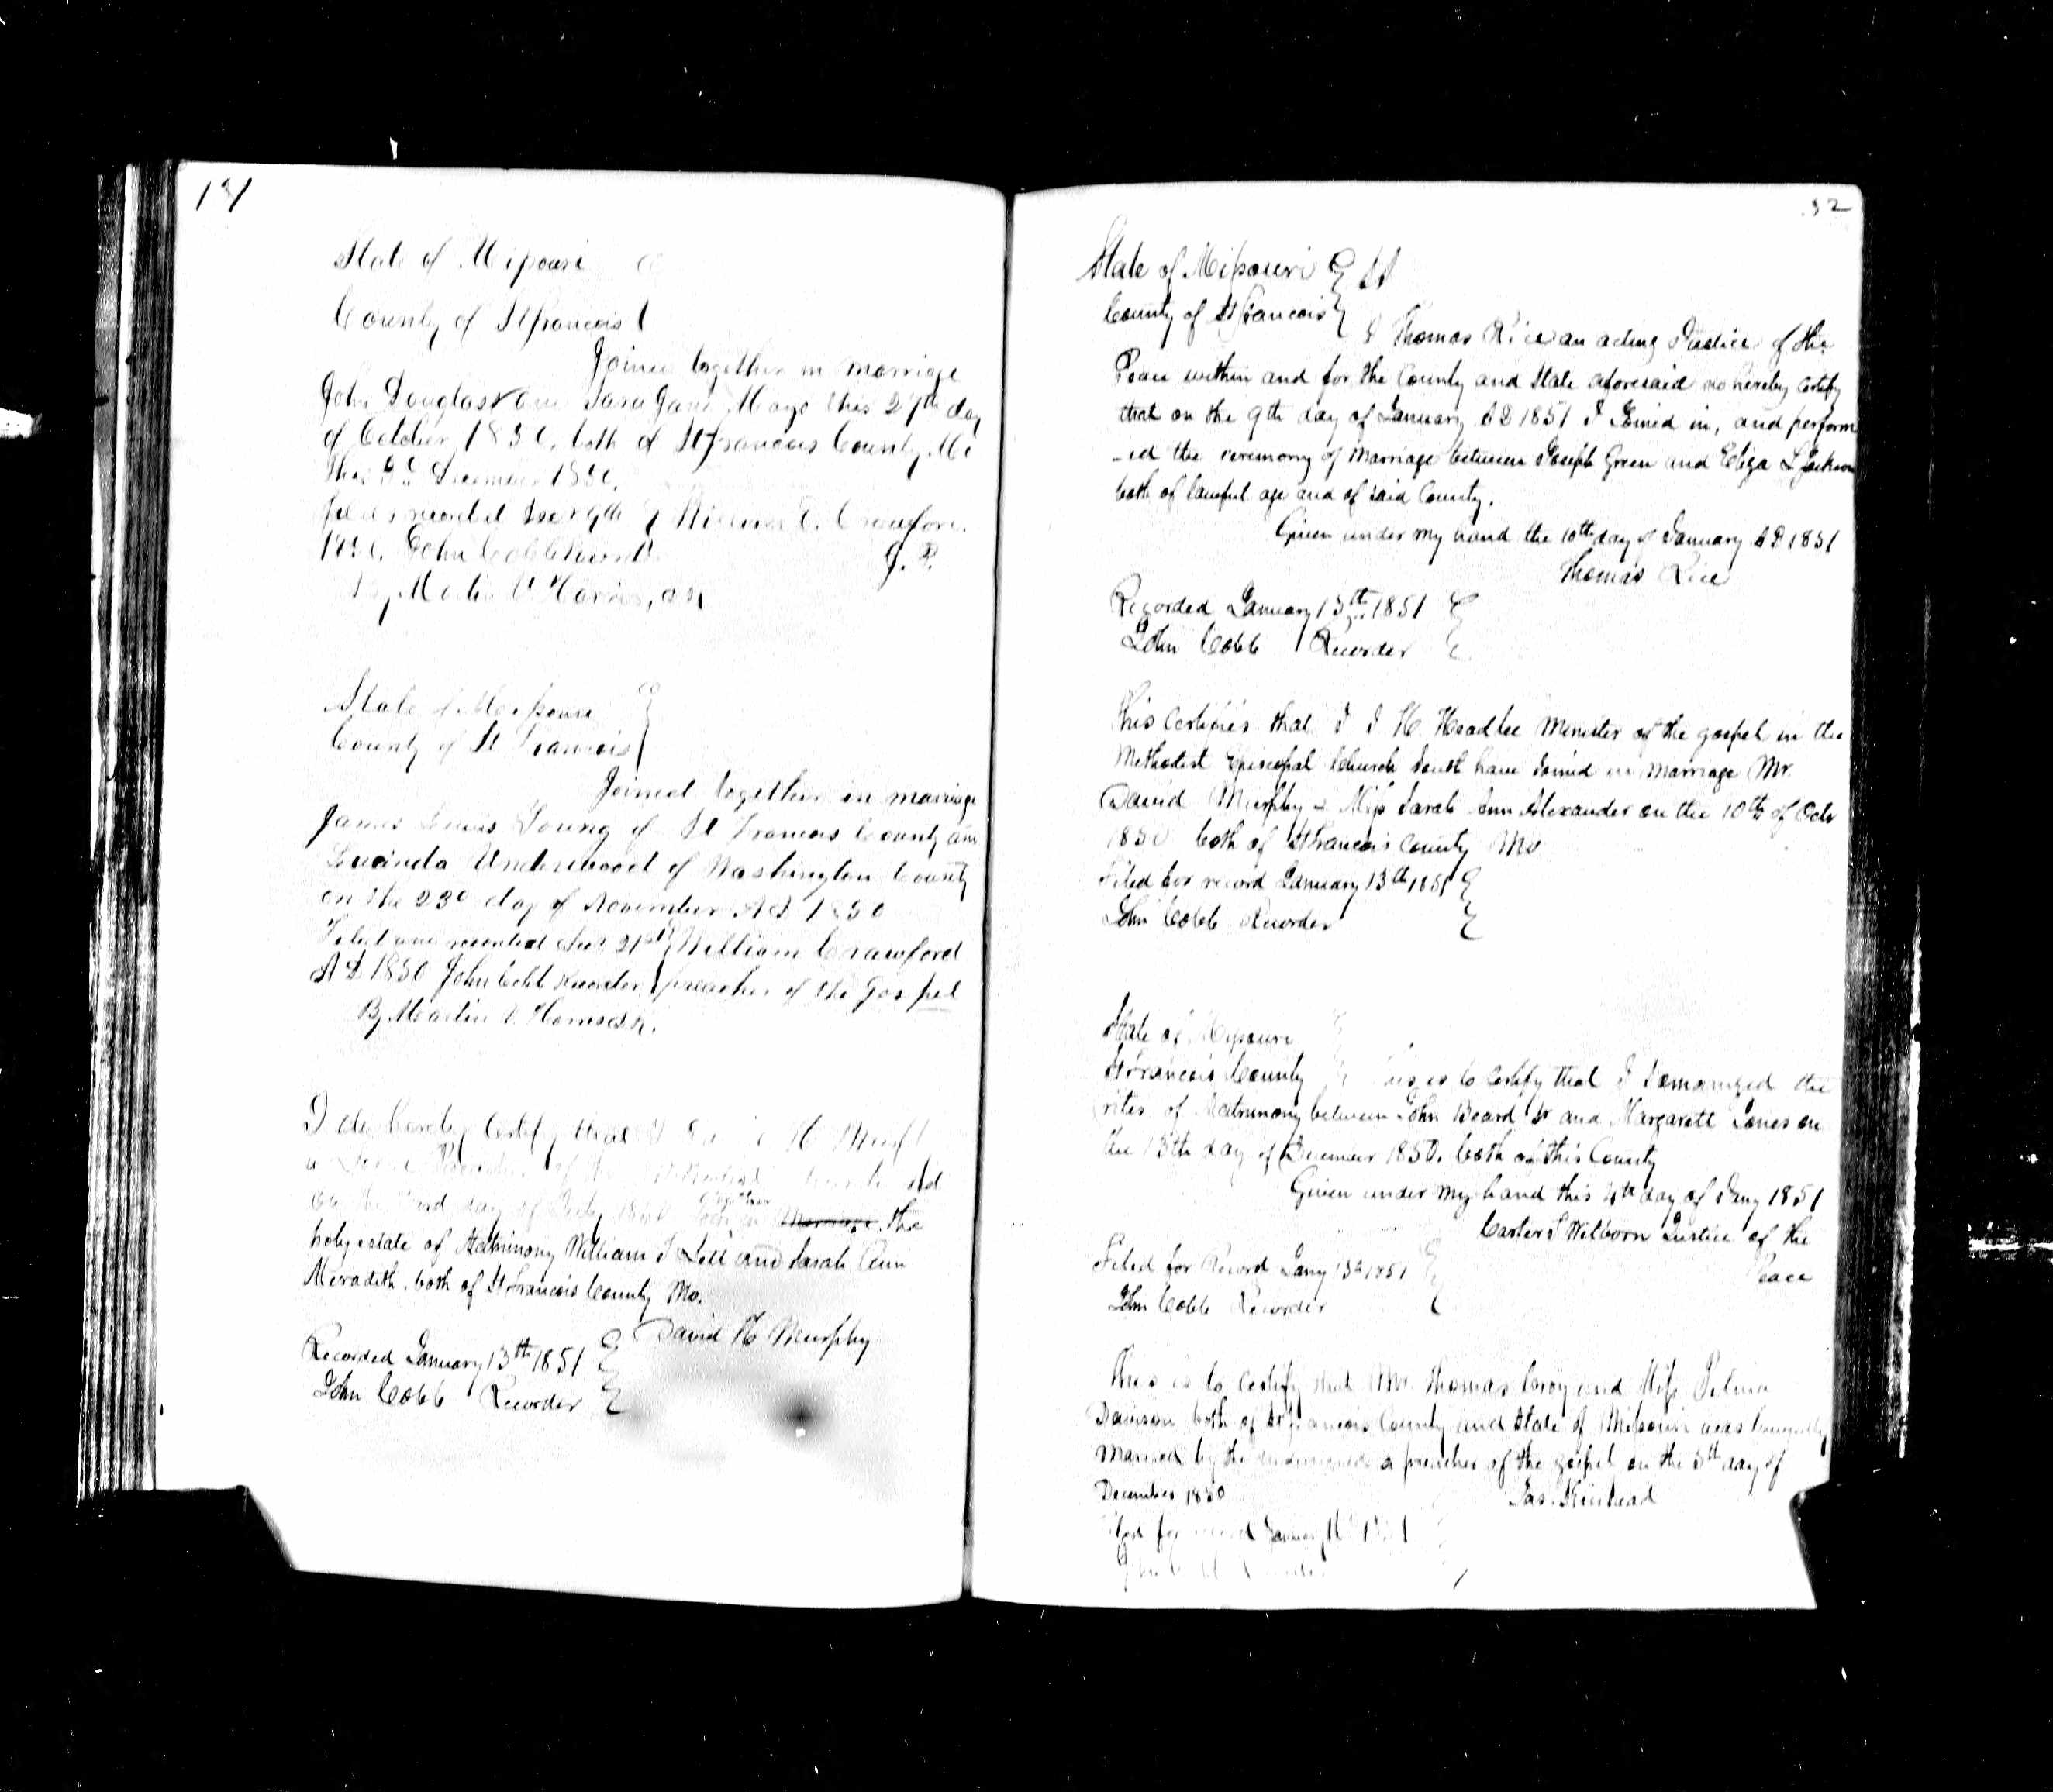 State of Missouri
County of St francois
Joined together in marriage
John Douglass and Sara Jane Mayo this 27th day
of October 1850, both of St francois County Mo
This 9th December 1850.
recorded Dec 9th William C. Crawford
1850. John Cobb Recorder J. P.
By Martin V Harris, D R
State of Missouri
County of St Francois
Joined together in marriage
James Lewis Young of St Francois County and
Lucinda Underwood of Washington County
on the 23d day of November A D 1850
Filed and recorded Dec 21st William Crawford
A D 1850 John Cobb Recorder preacher of the Gospel
By Martin V. Harris D. R.
I do hereby Certify that I H Murphy
a did
on the day of July together Marriage the
holy estate of Matrimony William I Lett and Sarah Ann
Meradith both of St Francois County Mo.
David H Murphy
Recorded January 13th 1851
John Cobb Recorder
32
State of Missouri
County of St francois
I Thomas Rice an acting Justice of the
Peace within and for the County and State aforesaid do hereby Certify
that on the 9th day of January A D 1851 I Joined in, and perform
-ed the ceremony of Marriage between Joseph Green and Eliza L Jackson
both of lawful age and of said County.
Given under my hand the 10th day of January A D 1851
Thomas Rice
Recorded January 13th 1851
John Cobb Recorder
This Certifies that I J H Headlee Minister of the gospel in the
Methodist Episcopal Church South have Joined in Marriage Mr.
David Murphy & Miss Sarah Ann Alexander on the 10th of Octr
1850 both of St Francois County Mo
Filed for record January 13th 1851
John Cobb Recorder
State of Missouri
St Francois County This is to Certify that I Solmonized the
rites of Matrimony between John Beard Jr and Margarett Jones on
the 13th day of December 1850. both of this County
Given under my hand this 4th day of Jany 1851
Carter Wilborn Justice of the
Peace
Filed for Record Jany 13th 1851
John Cobb Recorder
This is to Certify that Mr. Thomas Croy and Miss
Davison both of St Francois County and State of Missouri was
Married by the undersigned a preacher of the gospel on the 5th day of
December 1850 Jas. Kinhead
Filed for record January